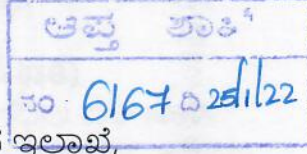 ಆಪ್ತ ಶಾಖೆ
ಸಂ 6167 ದಿ 25/1/22
ಇಲಾಖೆ